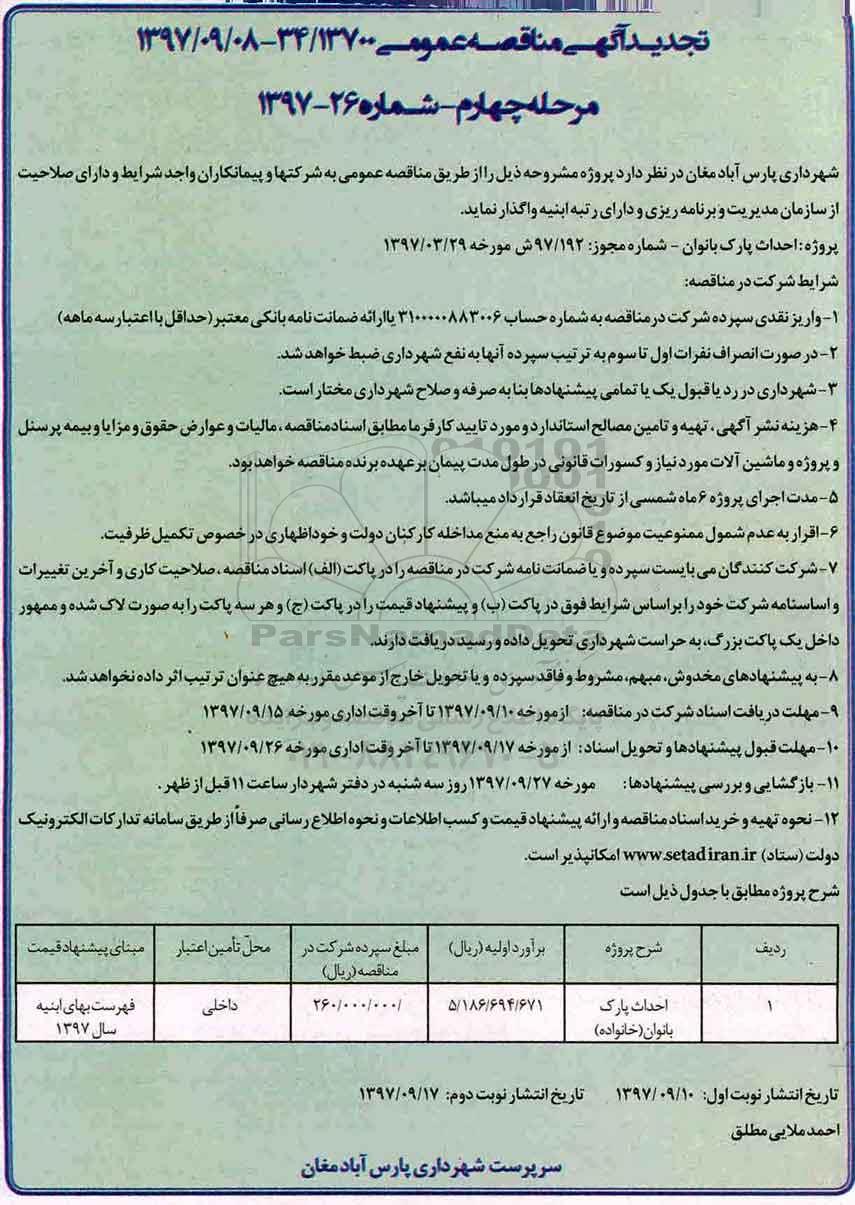 تجدیدآگهی مناقصه عمومی ۳۴/۱۳۷۰۰-۱۳۹۷/۰۹/۰۸
مرحله چهارم-شماره ۲۶-۱۳۹۷
شهرداری پارس آباد مغان در نظر دارد پروژه مشروحه ذیل را از طریق مناقصه عمومی به شرکتها و پیمانکاران واجد شرایط و دارای صلاحیت
از سازمان مدیریت و برنامه ریزی و دارای رتبه ابنیه واگذار نماید.
پروژه: احداث پارک بانوان - شماره مجوز: ۹۷/۱۹۲ش مورخه ۱۳۹۷/۰۳/۲۹
شرایط شرکت در مناقصه:
۱-واریز نقدی سپرده شرکت در مناقصه به شماره حساب ۳۱۰۰۰۰۰۸۸۳۰۰۶ یا ارائه ضمانت نامه بانکی معتبر(حداقل با اعتبار سه ماهه)
۲-در صورت انصراف نفرات اول تا سوم به ترتیب سپرده آنها به نفع شهرداری ضبط خواهد شد.
۳-شهرداری در رد یا قبول یک یا تمامی پیشنهادها بنا به صرفه و صلاح شهرداری مختار است.
۴-هزینه نشر آگهی، تهیه و تامین مصالح استاندارد و مورد تایید کارفرما مطابق اسناد مناقصه، مالیات و عوارض حقوق و مزایا و بیمه پرسنل
و پروژه و ماشین آلات مورد نیاز و کسورات قانونی در طول مدت پیمان بر عهده برنده مناقصه خواهد بود.
۵-مدت اجرای پروژه ۶ ماه شمسی از تاریخ انعقاد قرارداد میباشد.
۶-اقرار به عدم شمول ممنوعیت موضوع قانون راجع به منع مداخله کارکنان دولت و خوداظهاری در خصوص تکمیل ظرفیت.
۷-شرکت کنندگان می بایست سپرده و یا ضمانت نامه شرکت در مناقصه را در پاکت (الف) اسناد مناقصه، صلاحیت کاری و آخرین تغییرات
و اساسنامه شرکت خود را براساس شرایط فوق در پاکت (ب) و پیشنهاد قیمت را در پاکت (ج) و هر سه پاکت را به صورت لاک شده و ممهور
داخل یک پاکت بزرگ، به حراست شهرداری تحویل داده و رسید دریافت دارند.
ParsNamadData
۸-به پیشنهادهای مخدوش، مبهم، مشروط و فاقد سپرده و یا تحویل خارج از موعد مقرر به هیچ عنوان ترتیب اثر داده نخواهد شد.
۹-مهلت دریافت اسناد شرکت در مناقصه: از مورخه ۱۳۹۷/۰۹/۱۰ تا آخر وقت اداری مورخه ۱۳۹۷/۰۹/۱۵
۱۰-مهلت قبول پیشنهادها و تحویل اسناد: از مورخه ۱۳۹۷/۰۹/۱۷ تا آخر وقت اداری مورخه ۱۳۹۷/۰۹/۲۶
۱۱-بازگشایی و بررسی پیشنهادها: مورخه ۱۳۹۷/۰۹/۲۷ روز سه شنبه در دفتر شهردار ساعت ۱۱ قبل از ظهر.
۱۲- نحوه تهیه و خرید اسناد مناقصه و ارائه پیشنهاد قیمت و کسب اطلاعات و نحوه اطلاع رسانی صرفاً از طریق سامانه تدارکات الکترونیک
دولت (ستاد) www.setadiran.ir امکانپذیر است.
شرح پروژه مطابق با جدول ذیل است
ردیف شرح پروژه برآورد اولیه (ریال) مبلغ سپرده شرکت در مناقصه (ریال) محلّ تأمین اعتبار مبنای پیشنهاد قیمت
۱ احداث پارک بانوان(خانواده) ۵/۱۸۶/۶۹۴/۶۷۱ ۲۶۰/۰۰۰/۰۰۰/ داخلی فهرست بهای ابنیه سال ۱۳۹۷
تاریخ انتشار نوبت اول: ۱۳۹۷/۰۹/۱۰ تاریخ انتشار نوبت دوم: ۱۳۹۷/۰۹/۱۷
احمد ملایی مطلق
سرپرست شهرداری پارس آباد مغان